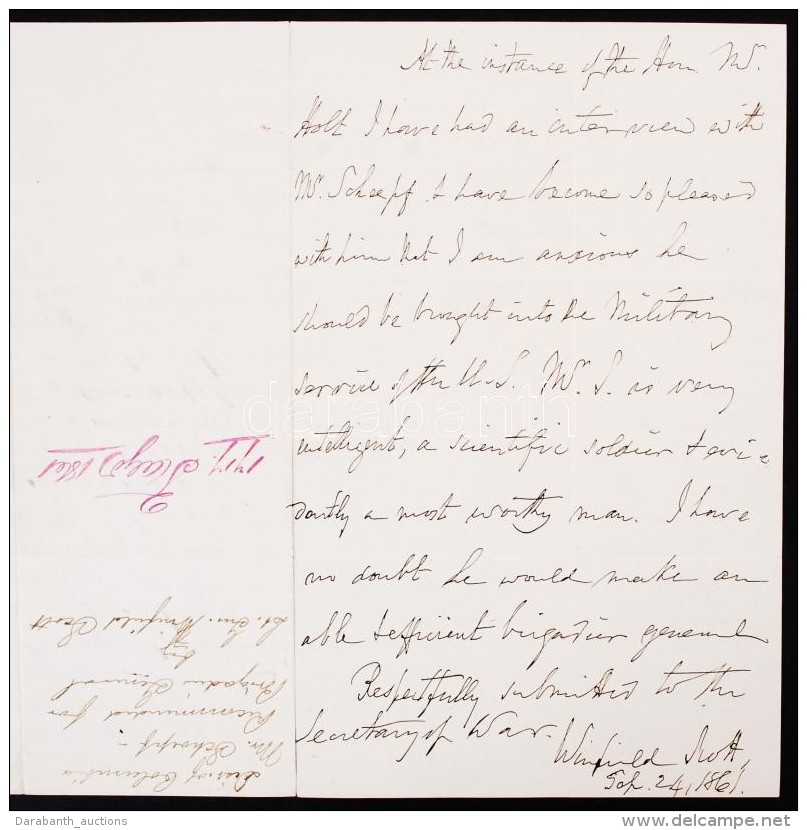 At the instance of the Hon. Mr.
Holt I have had an interview with
Mr. Schoepf. I have become so pleased
with him that I am anxious he
should be brought into the Military
service of the U.S. Mr. S. is very
intelligent, a scientific soldier & evi-
dently a most worthy man. I have
no doubt he would make an
able & efficient brigadier general
Respectfully submitted to the
Secretary of War.
Winfield Scott,
Sep. 24, 1861.
Columbia
Mr. Schoepf -
Recommended for
Brigadier General
by
Lt. Gen. Winfield Scott
1861
darabanth
Darabanth_auctions
delcampe.net